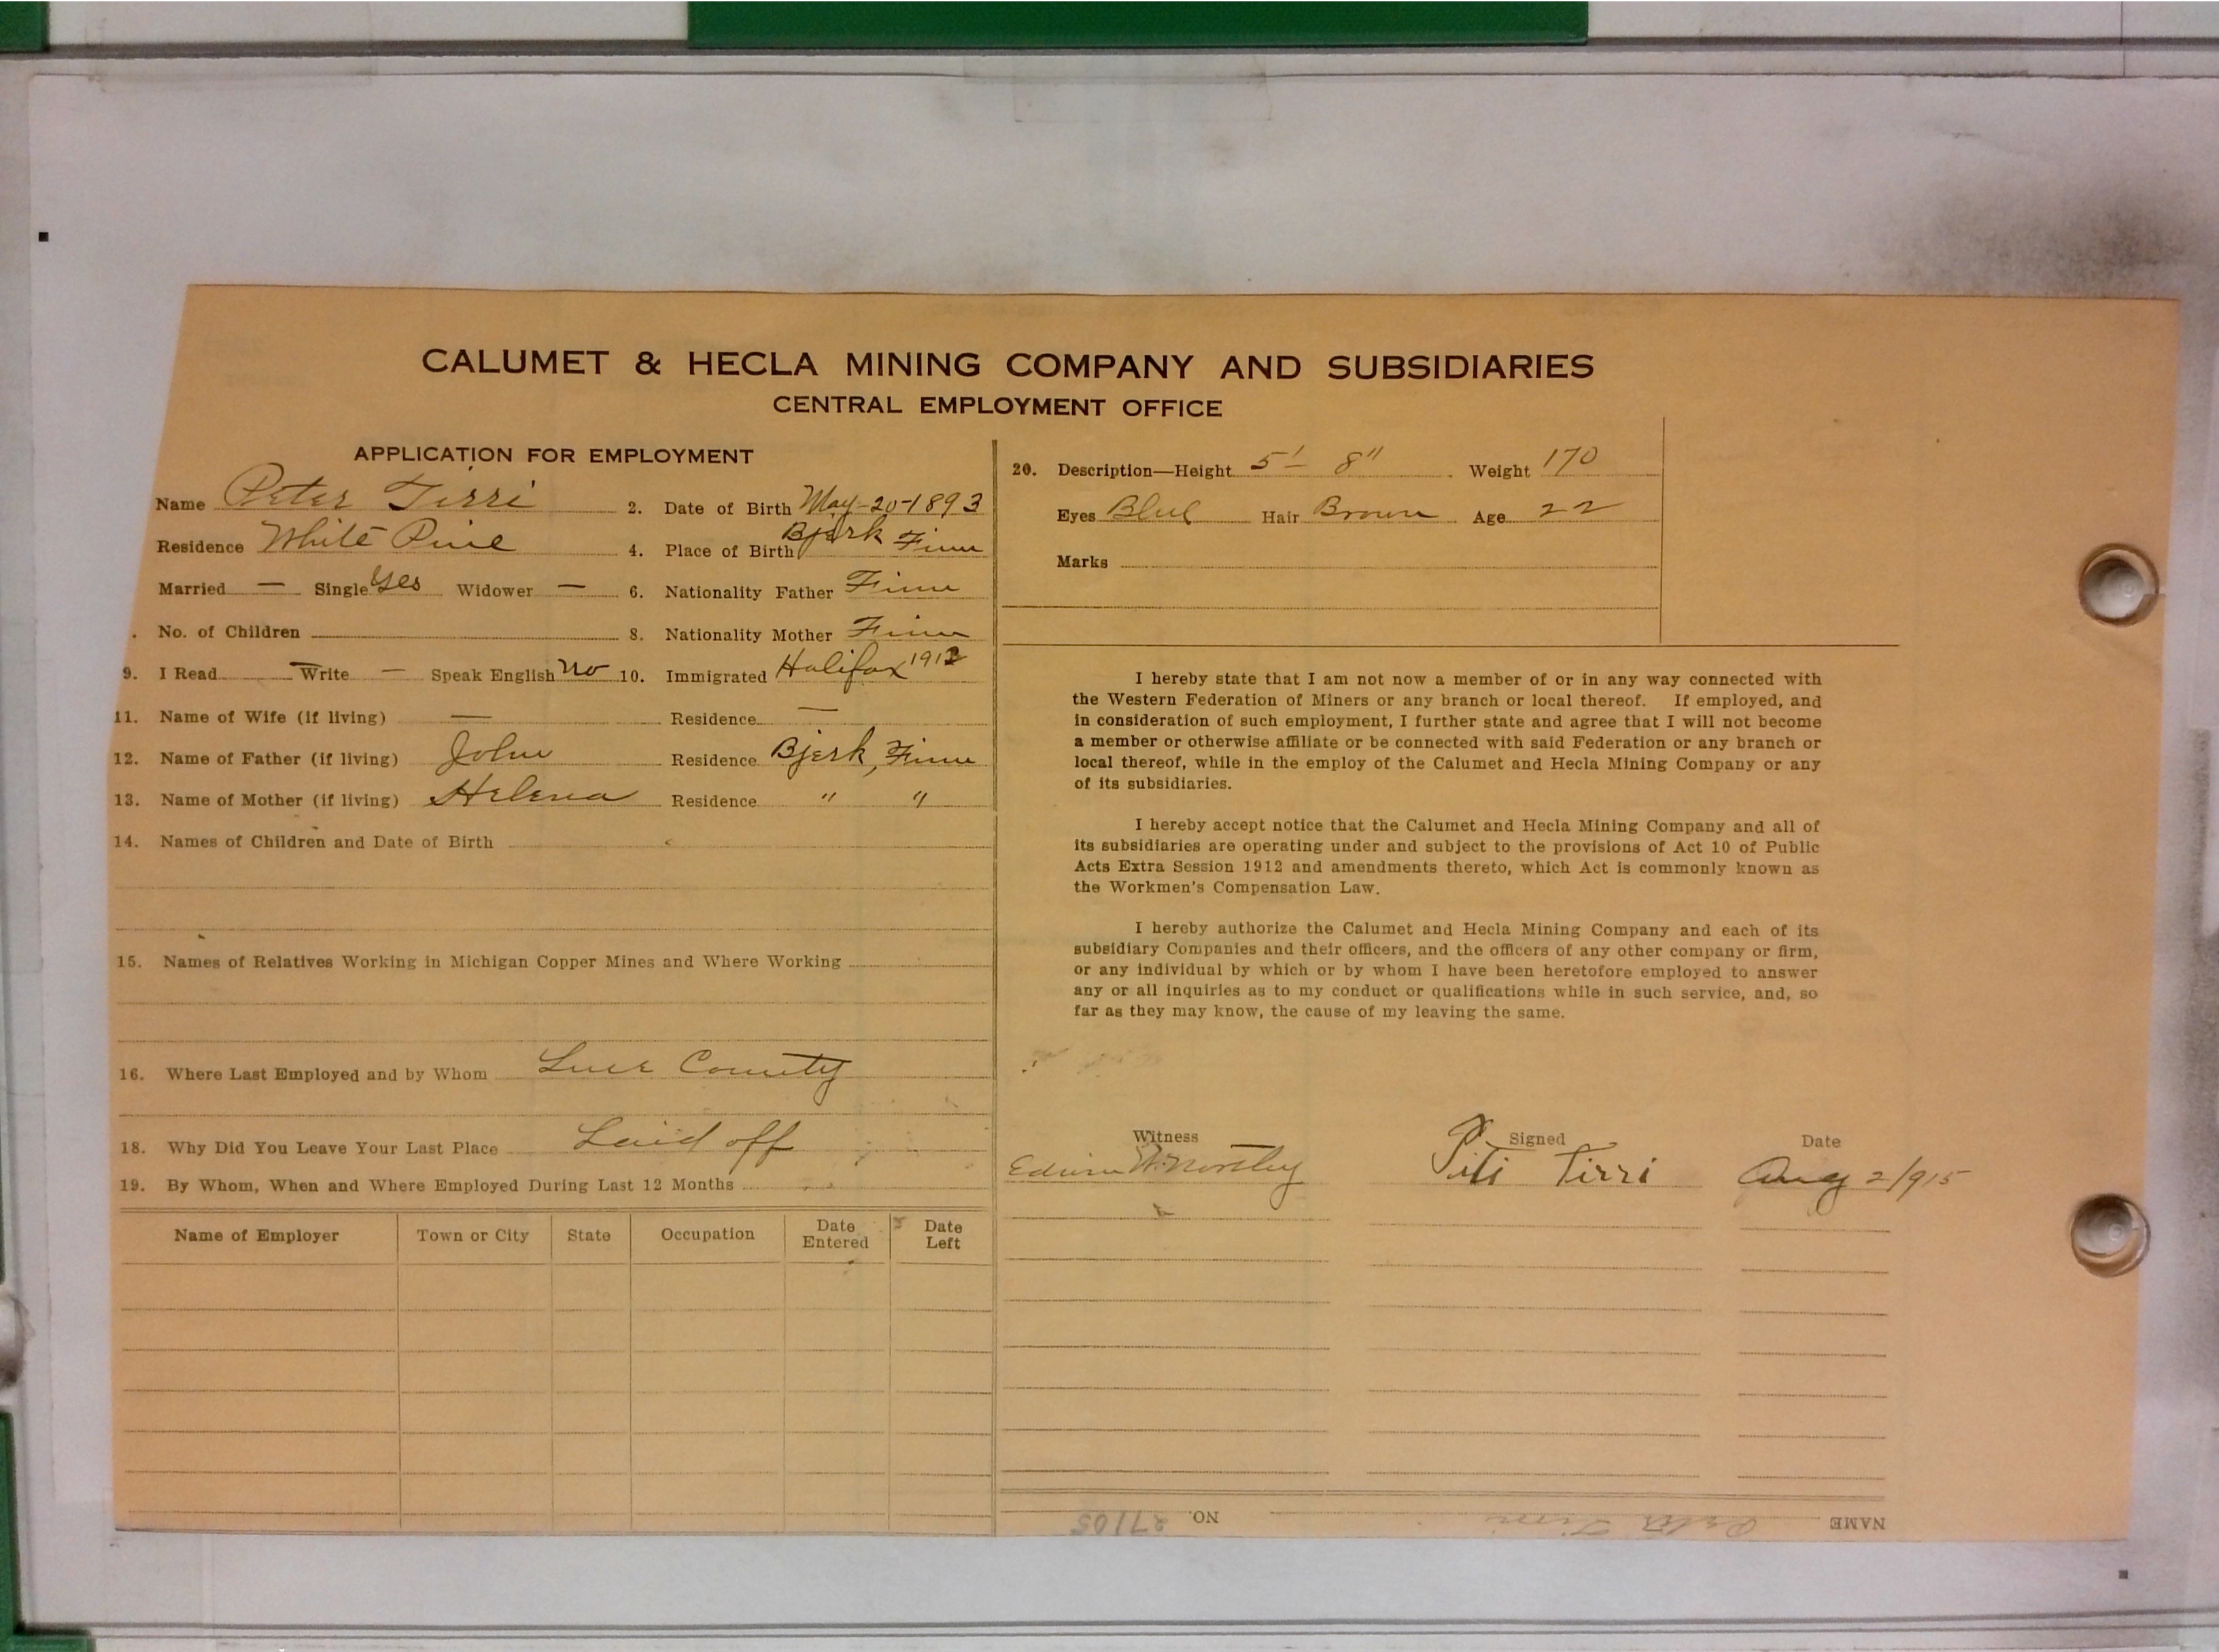 CALUMET & HECLA MINING COMPANY AND SUBSIDIARIES
CENTRAL EMPLOYMENT OFFICE
APPLICATION FOR EMPLOYMENT
Name Peter Tirri 2. Date of Birth May-20-1893
Residence White Pine 4. Place of Birth Bjerk Finn
Married — Single Yes Widower — 6. Nationality Father Finn
. No. of Children 8. Nationality Mother Finn
9. I Read Write — Speak English no 10. Immigrated Halifax 1912
11. Name of Wife (if living) — Residence —
12. Name of Father (if living) John Residence Bjerk, Finn
13. Name of Mother (if living) Helena Residence " "
14. Names of Children and Date of Birth
15. Names of Relatives Working in Michigan Copper Mines and Where Working
16. Where Last Employed and by Whom Luce County
18. Why Did You Leave Your Last Place Laid off
19. By Whom, When and Where Employed During Last 12 Months
Name of Employer Town or City State Occupation Date Entered Date Left
20. Description—Height 5' 8" Weight 170
Eyes Blue Hair Brown Age 22
Marks
I hereby state that I am not now a member of or in any way connected with
the Western Federation of Miners or any branch or local thereof. If employed, and
in consideration of such employment, I further state and agree that I will not become
a member or otherwise affiliate or be connected with said Federation or any branch or
local thereof, while in the employ of the Calumet and Hecla Mining Company or any
of its subsidiaries.
I hereby accept notice that the Calumet and Hecla Mining Company and all of
its subsidiaries are operating under and subject to the provisions of Act 10 of Public
Acts Extra Session 1912 and amendments thereto, which Act is commonly known as
the Workmen's Compensation Law.
I hereby authorize the Calumet and Hecla Mining Company and each of its
subsidiary Companies and their officers, and the officers of any other company or firm,
or any individual by which or by whom I have been heretofore employed to answer
any or all inquiries as to my conduct or qualifications while in such service, and, so
far as they may know, the cause of my leaving the same.
Witness Signed Date
Edwin Piti Tirri Aug 2/915
NAME Peter Tirri NO. 27105